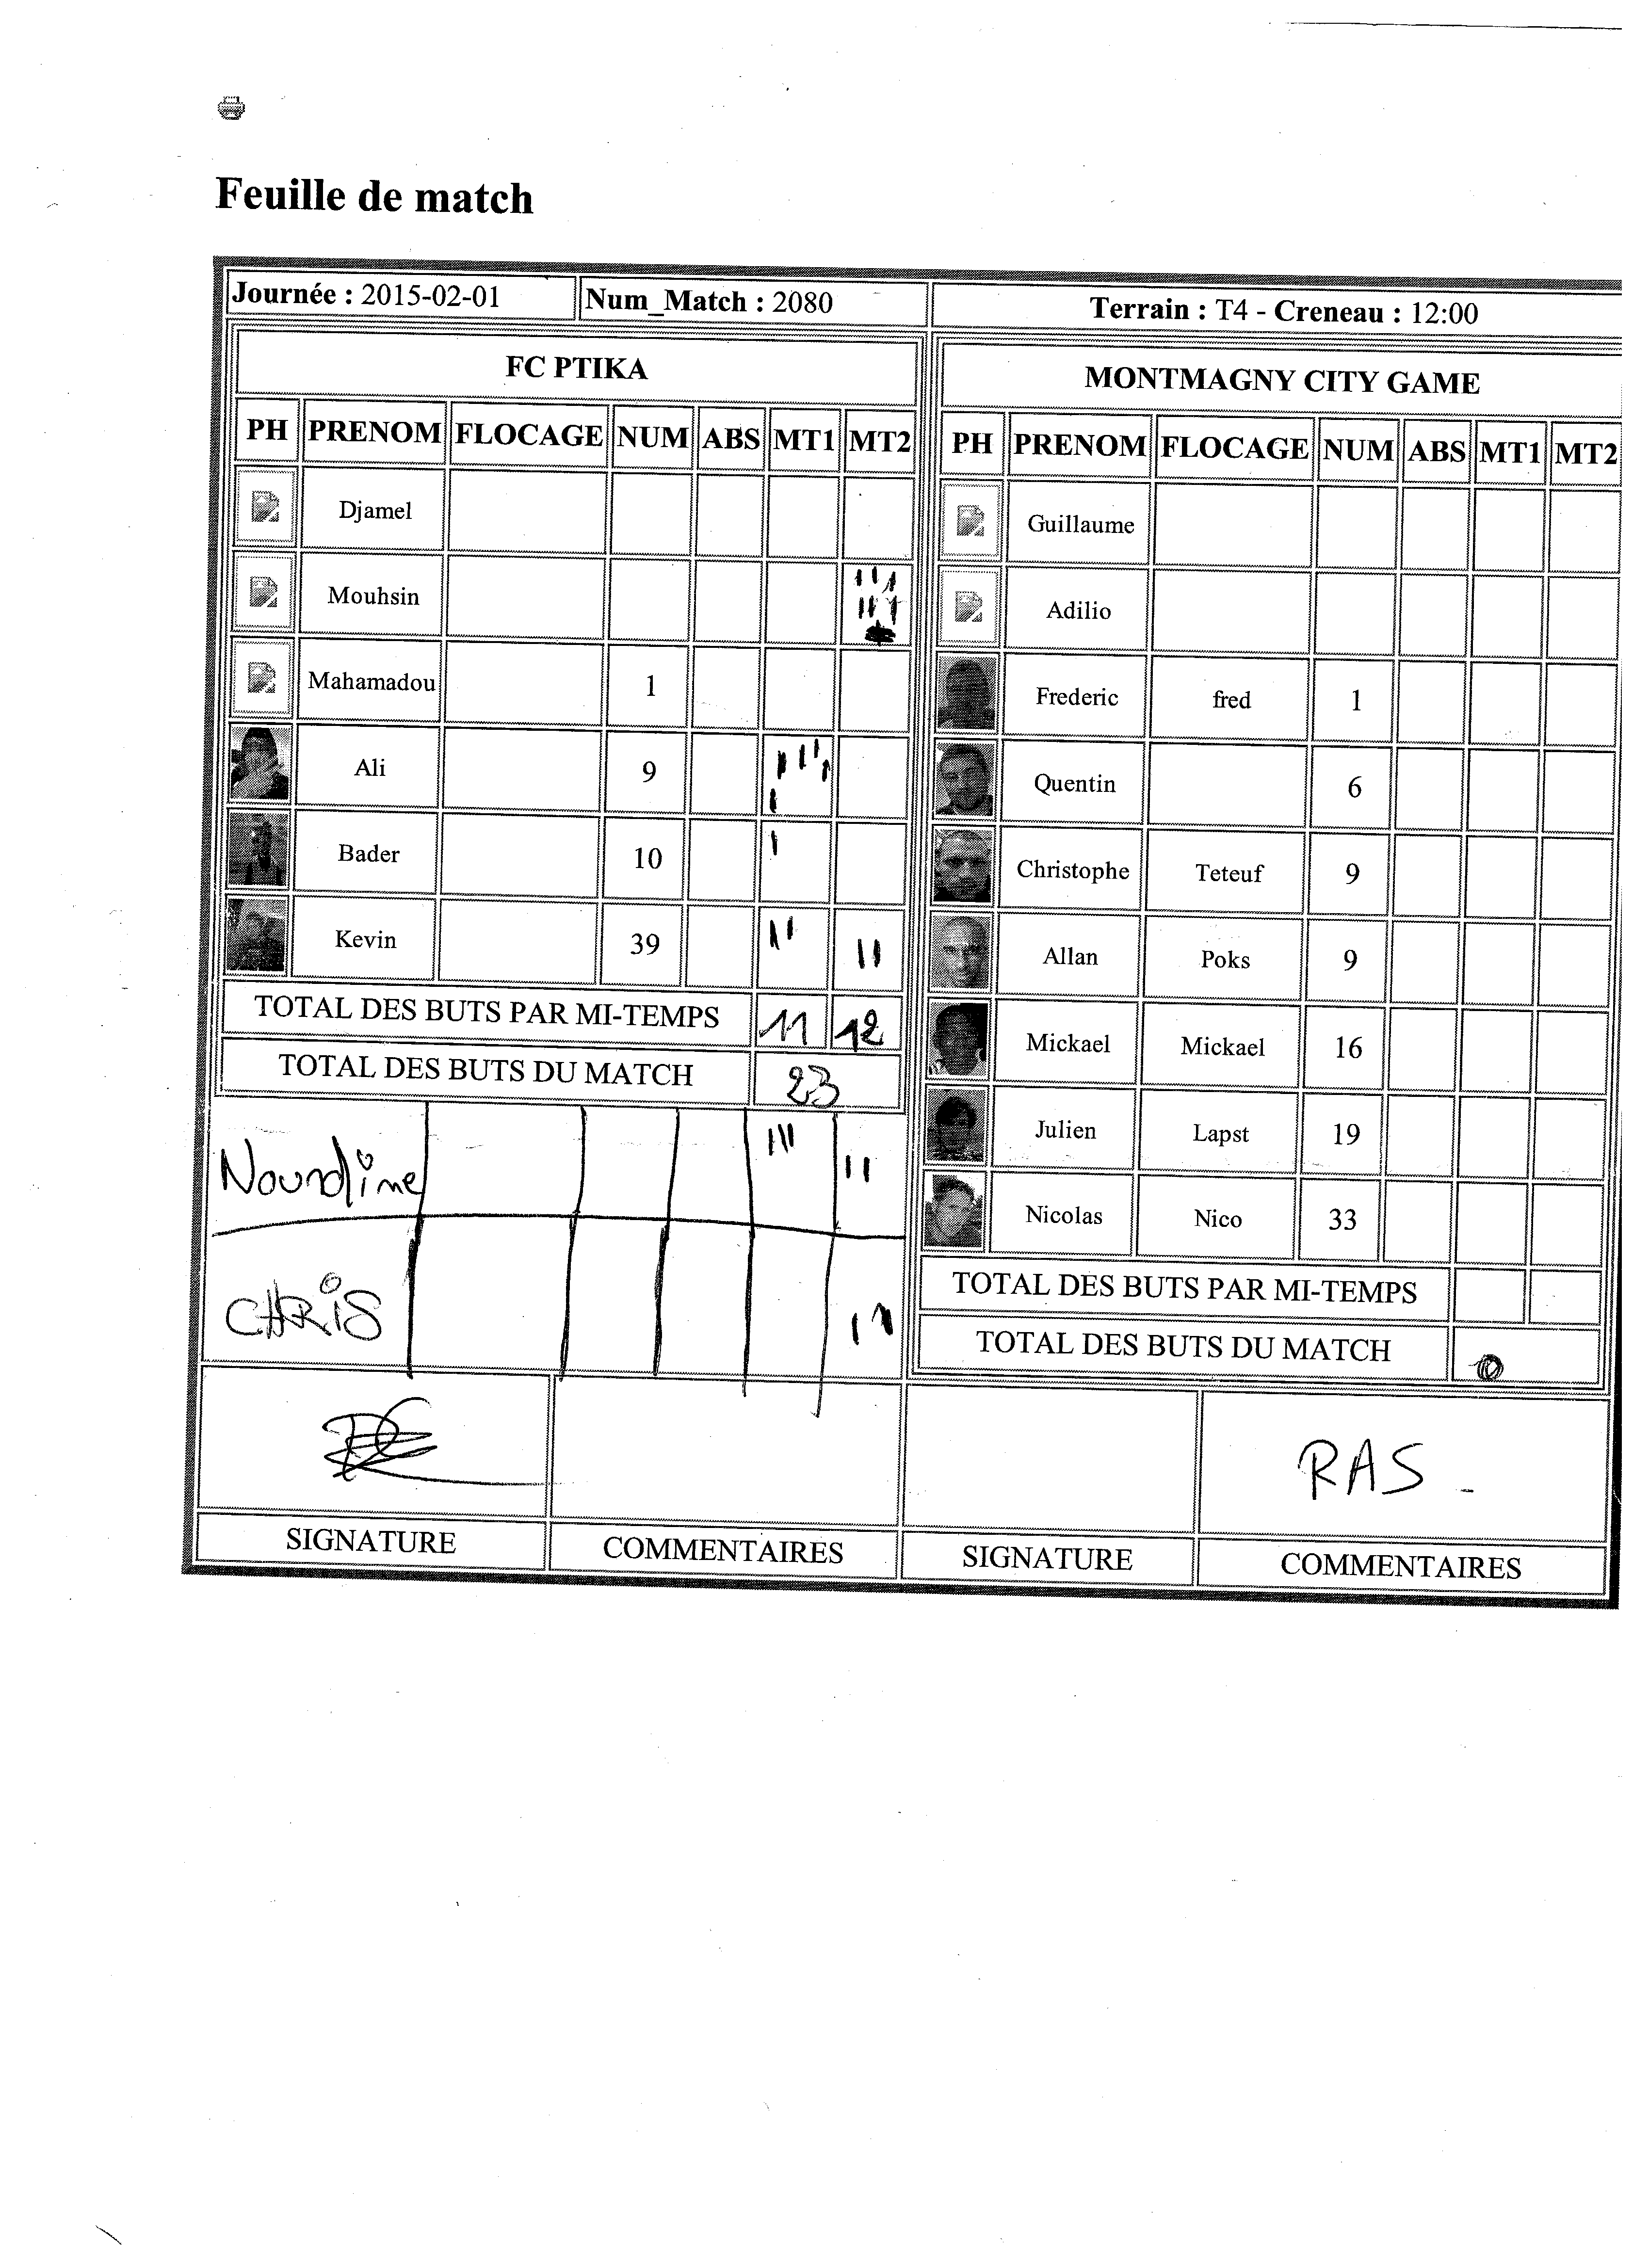 Feuille de match
Journée : 2015-02-01 Num_Match : 2080 Terrain : T4 - Creneau : 12:00
FC PTIKA
PH PRENOM FLOCAGE NUM ABS MT1 MT2
Djamel
Mouhsin
Mahamadou 1
Ali 9
Bader 10
Kevin 39
TOTAL DES BUTS PAR MI-TEMPS 11 12
TOTAL DES BUTS DU MATCH 23
Nourdine
CHRiS
SIGNATURE COMMENTAIRES
MONTMAGNY CITY GAME
PH PRENOM FLOCAGE NUM ABS MT1 MT2
Guillaume
Adilio
Frederic fred 1
Quentin 6
Christophe Teteuf 9
Allan Poks 9
Mickael Mickael 16
Julien Lapst 19
Nicolas Nico 33
TOTAL DES BUTS PAR MI-TEMPS
TOTAL DES BUTS DU MATCH 0
RAS -
SIGNATURE COMMENTAIRES